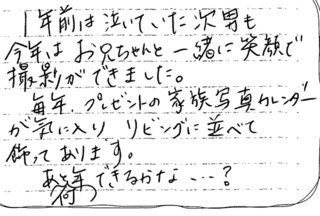 1年前は泣いていた次男も
今年はお兄ちゃんと一緒に笑顔で
撮影ができました。
毎年、プレゼントの家族写真カレンダー
が気に入り リビングに並べて
飾ってあります。
あと何年できるかな…?